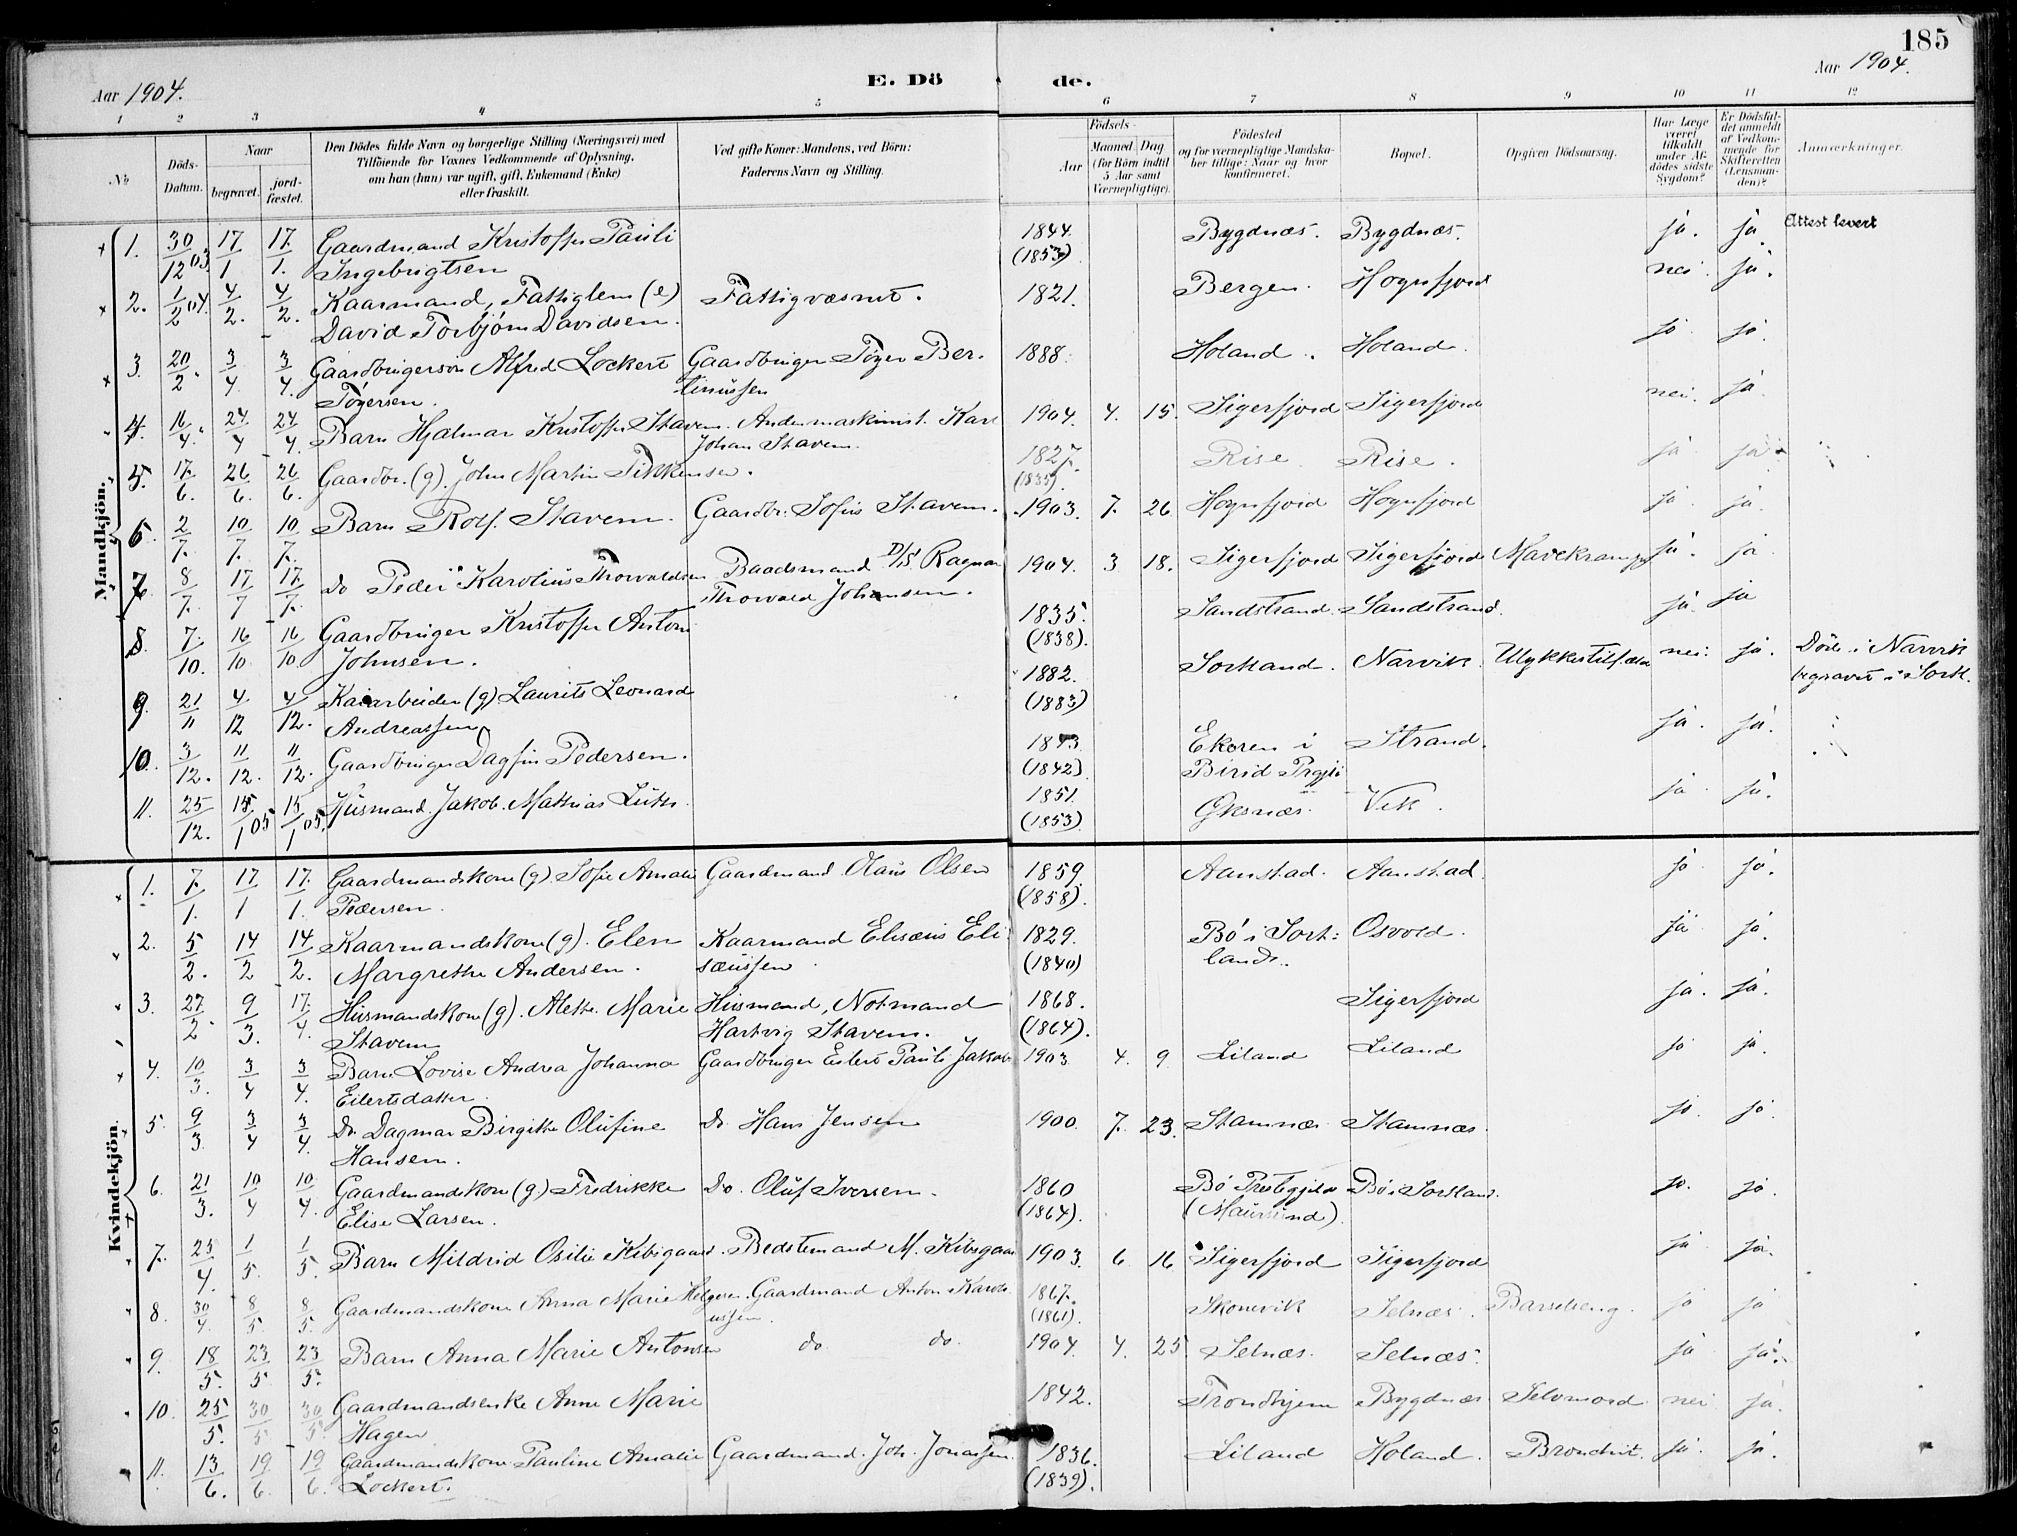 185
Aar 1904. E. Dö de. Aar 1904.
1 2 3 4 5 6 7 8 9 10 11 12
No
Döds-Datum.
Naar
begravet.
jord-fæstet.
Den Dödes fulde Navn og borgerlige Stilling (Næringsvei) med
Tilföiende for Voxnes Vedkommende af Oplysning,
om han (hun) var ugift, gift, Enkemand (Enke)
eller fraskilt.
Ved gifte Koner: Mandens, ved Börn:
Faderens Navn og Stilling.
Födsels-
Aar
Maaned. Dag
(for Börn indtil
5 Aar samt
Værnepligtige).
Födested
og for værnepligtige Mandska-
ber tillige: Naar og hvor
konfirmeret.
Bopæl.
Opgiven Dödsaarsag.
Har Læge
været
tilkaldt
under Af-
dödes sidste
Sygdom?
Er Dödsfal-
det anmeldt
af Vedkom-
mende for
Skifteretten
(Lensman-
den)?
Anmærkninger.
Mandkjön.
1. 30/12 03 17/1 17/1. Gaardmand Kristoffer Pauli 1844. Bygdnæs. Bygdnæs. ja. ja. Attest levert
Ingebrigtsen (1853)
2. 1/2 04. 4/2. 4/2. Kaarmand, Fattiglem (e) Fattigvæsnet. 1821. Bergen. Hognfjord nei. ja.
David Torbjörn Davidsen.
3. 20/2. 3/4 3/4. Gaardbrugersön Alfred Lockert Gaardbruger Töger Ber- 1888. Holand. Holand. ja. ja.
Tögersen. tinussen
4. 16/4. 24/4 24/4. Barn Hjalmar Kristoffer Stavem. Andenmaskinist Karl 1904. 4. 15. Sigerfjord Sigerfjord nei. ja.
Johan Stavem.
5. 17/6. 26/6. 26/6. Gaardbr. (g). John Martin Sikkensen. 1827. Rise Rise. ja ja
(1835)
6. 2/7. 10/7. 10/7. Barn Rolf Stavem. Gaardbr. Sofus Stavem. 1903. 7. 26 Hognfjord Hognfjord ja. ja.
7. 8/7. 17/7 17/7. Do Peder Karolius Thorvaldsen Baadsmand D/S Ragnar 1904. 3 18. Sigerfjord Sigerfjord Mavekrampe ja. ja
Thorvald Johansen.
8. 7/10. 16/10 16/10. Gaardbruger Kristoffer Anton 1835. Sandstrand. Sandstrand. ja. ja
Johnsen. (1838)
9. 21/11 4/12 4/12. Kaiarbeider (g) Laurits Leonard 1882. Sortland. Narvik. Ulykkestilfælde nei. ja. Döde i Narvik
Andreassen (1883) begravet i Sortl.
10. 3/12. 11/12. 11/12. Gaardbruger Dagfin Pedersen. 1843. Ekeren i Strand. ja. ja.
(1842) Birid Prgjld
11. 25/12. 15/1 05 15/1 05. Husmand Jakob Mathias Lüth. 1851. Øksnæs. Vik. ja ja.
(1853)
Kvindekjön.
1. 7/1. 17/1 17/1. Gaardmandskone (g). Sofie Amalie Gaardmand Olaus Olsen 1859. Aanstad. Aanstad. ja. ja.
Pedersen. (1858).
2. 5/2. 14/2 14/2. Kaarmandskone (g). Elen Kaarmand Elisæus Eli- 1829. Bö i Sort- Osvold. ja ja.
Margrethe Andersen. sæussen. (1840) land.
3. 27/2 9/3. 17/4. Husmandskone (g). Alethe Marie Husmand, Notmand 1868. Sigerfjord ja. ja.
Stavem Hartvig Stavem. (1864).
4. 10/3. 3/4 3/4. Barn Lovise Andrea Johanna Gaardbruger Eilert Pauli Jakob- 1903. 4. 9. Liland Liland ja ja.
Eilertsdatter.
5. 9/3. 3/4 3/4. Do Dagmar Birgitte Olufine Do. Hans Jensen 1900. 7. 23. Stamnæs Stamnæs. ja. ja.
Hansen.
6. 21/3. 10/4 10/4. Gaardmandskone (g.) Fredrikke Do. Oluf Iversen. 1860 Bö Prestegjeld Bö i Sortland. ja. ja.
Elise Larsen. (1864). (Maursund).
7. 25/4. 1/5. 1/5. Barn Mildrid Osilie Kibsgaard. Bedstemand M. Kibsgaard 1903. 6. 16 Sigerfjord Sigerfjord ja ja.
8. 30/4. 8/5. 8/5. Gaardmandskone Anna Marie Helgesen. Gaardmand Anton Karoli- 1867. Skonevik Selnæs. Barselseng. ja ja
ussen. (1861).
9. 18/5. 23/5. 23/5. Barn Anna Marie Antonsen do do. 1904. 4. 25 Selnæs. Selnæs. ja ja.
10. 25/5. 30/5 30/5. Gaardmandsenke Anne Marie 1842. Trondhjem Bygdnæs Selvmord. nei ja.
Hagen
11. 13/6. 19/6. 19/6. Gaardmandskone Pauline Amalie Gaardmand Joh. Jonassen. 1836. Liland Holand. Bronchit. ja. ja.
Lockert. (1839).